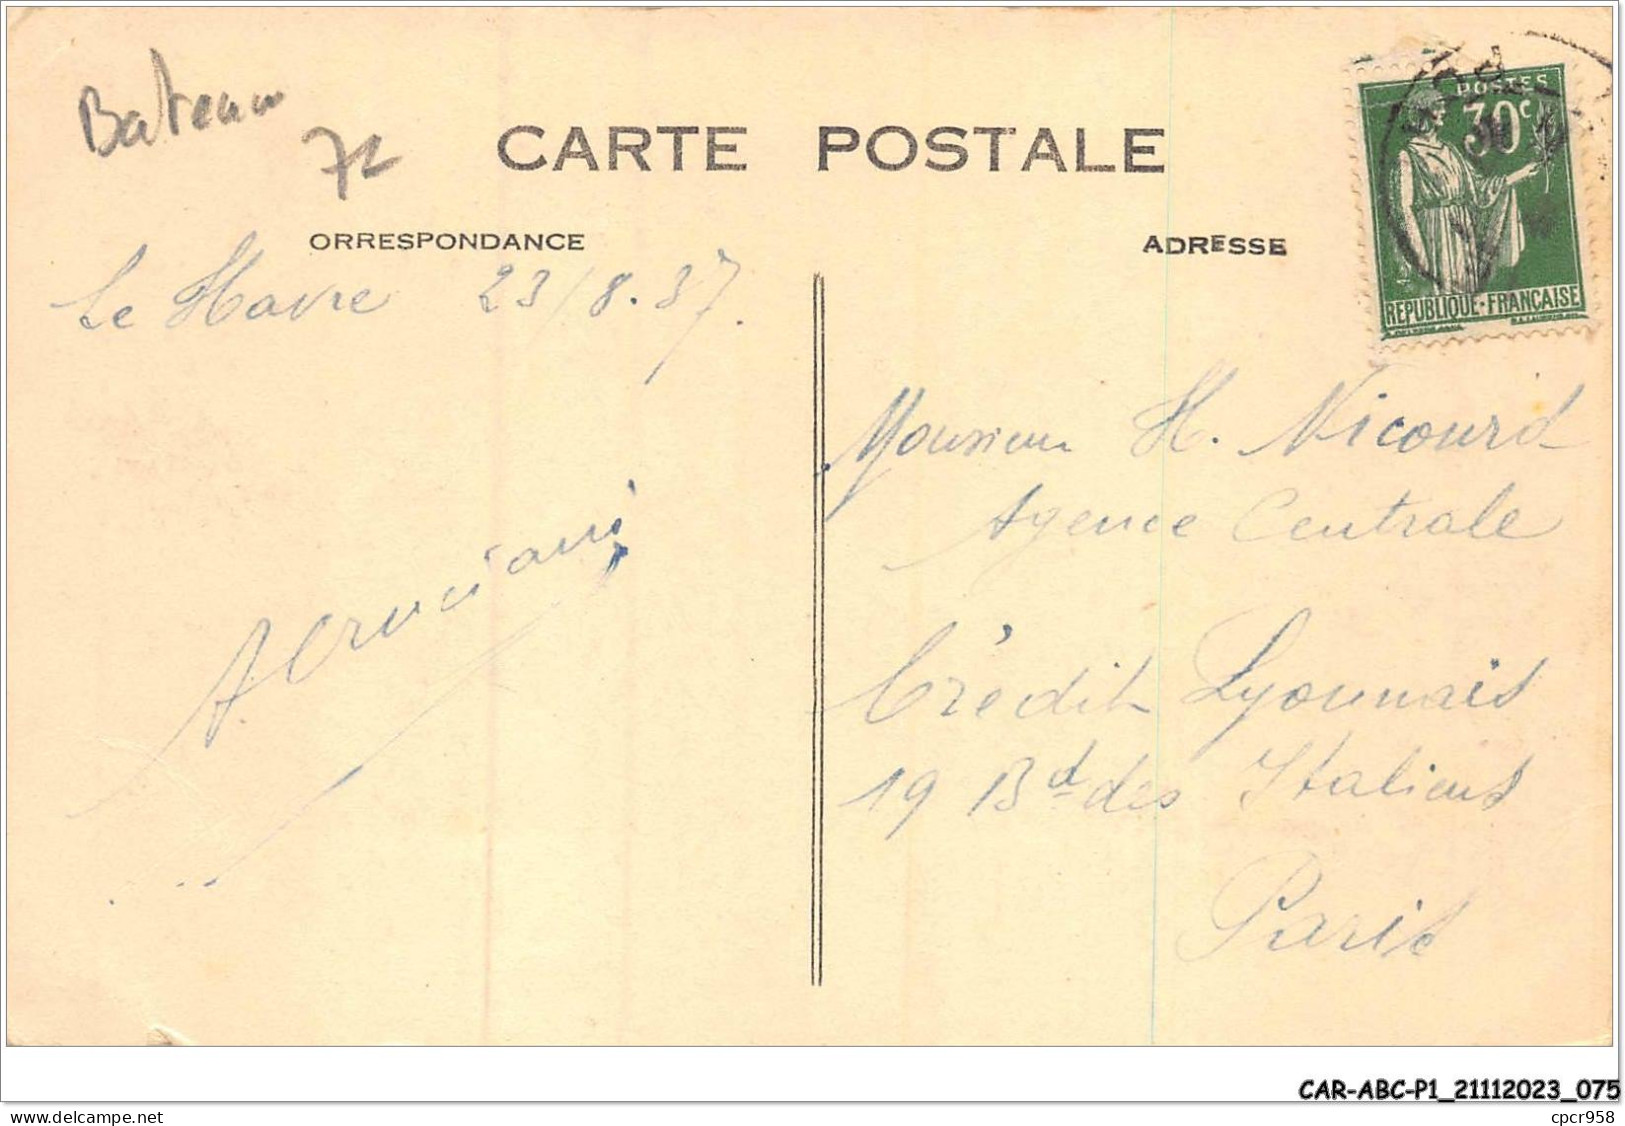 Bateau
CARTE POSTALE
POSTES
30c
REPUBLIQUE·FRANÇAISE
ORRESPONDANCE
ADRESSE
Le Havre 23/8.37.
Monsieur H. Nicourd
Agence Centrale
Crédit Lyonnais
19 Bd des Italiens
Paris
CAR-ABC-P1_21112023_075
www.delcampe.net
cpcr958